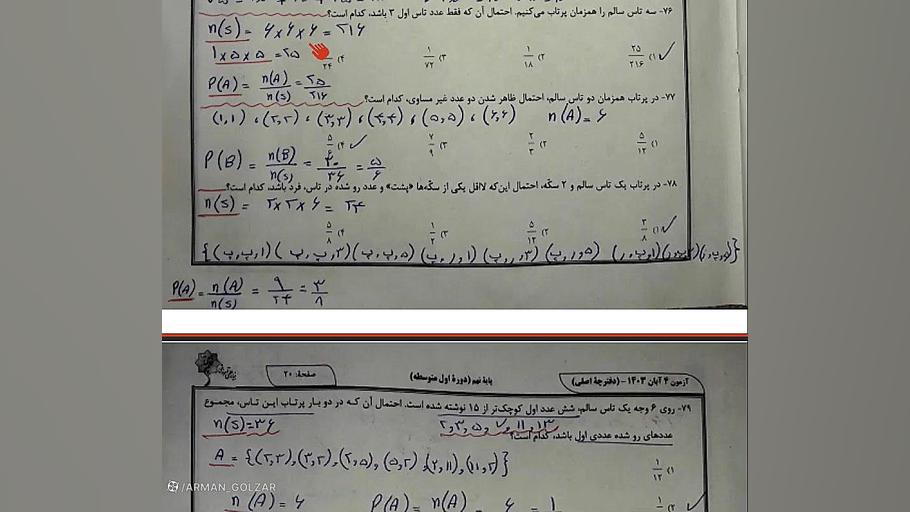 ۷۶- سه تاس سالم را همزمان پرتاب می‌کنیم. احتمال آن که فقط عدد تاس اول ۳ باشد، کدام است؟
n(S) = ۶ × ۶ × ۶ = ۲۱۶
۱ × ۵ × ۵ = ۲۵
۱) ۲۵/۲۱۶ ✓ ۲) ۱/۱۸ ۳) ۱/۷۲ ۴) /۲۴
P(A) = n(A)/n(S) = ۲۵/۲۱۶
۷۷- در پرتاب همزمان دو تاس سالم، احتمال ظاهر شدن دو عدد غیر مساوی، کدام است؟
(۱,۱) ، (۲,۲) ، (۳,۳) ، (۴,۴) ، (۵,۵) ، (۶,۶) n(A) = ۶
۱) ۵/۱۲ ۲) ۲/۳ ۳) ۷/۹ ۴) ۵/۶ ✓
P(B) = n(B)/n(S) = ۳۰/۳۶ = ۵/۶
۷۸- در پرتاب یک تاس سالم و ۲ سکّه، احتمال این‌که لااقل یکی از سکّه‌ها «پشت» و عدد رو شده در تاس، فرد باشد، کدام است؟
n(S) = ۲ × ۲ × ۶ = ۲۴
۱) ۳/۸ ✓ ۲) ۵/۱۲ ۳) ۱/۲ ۴) ۵/۸
{(پ,پ,۱) (پ,پ,۳) (پ,پ,۵) (پ,ر,۱) (پ,ر,۳) (پ,ر,۵) (ر,پ,۱) (ر,پ,۳) (ر,پ,۵)}
P(A) = n(A)/n(S) = ۹/۲۴ = ۳/۸
آزمون ۴ آبان ۱۴۰۳ - (دفترچۀ اصلی) پایۀ نهم (دورۀ اول متوسطه) صفحۀ: ۲۰
۷۹- روی ۶ وجه یک تاس سالم، شش عدد اول کوچک‌تر از ۱۵ نوشته شده است. احتمال آن که در دو بار پرتاب این تاس، مجموع
n(S) = ۳۶ ۲,۳,۵,۷,۱۱,۱۳
عددهای رو شده عددی اول باشد، کدام است؟
A = {(۲,۳),(۳,۲),(۲,۵),(۵,۲),(۲,۱۱),(۱۱,۲)}
۱) ۱/۱۲
/ARMAN_GOLZAR
n(A) = ۶ P(A) = n(A) = ۶ = ۱
۲) ۱ ✓